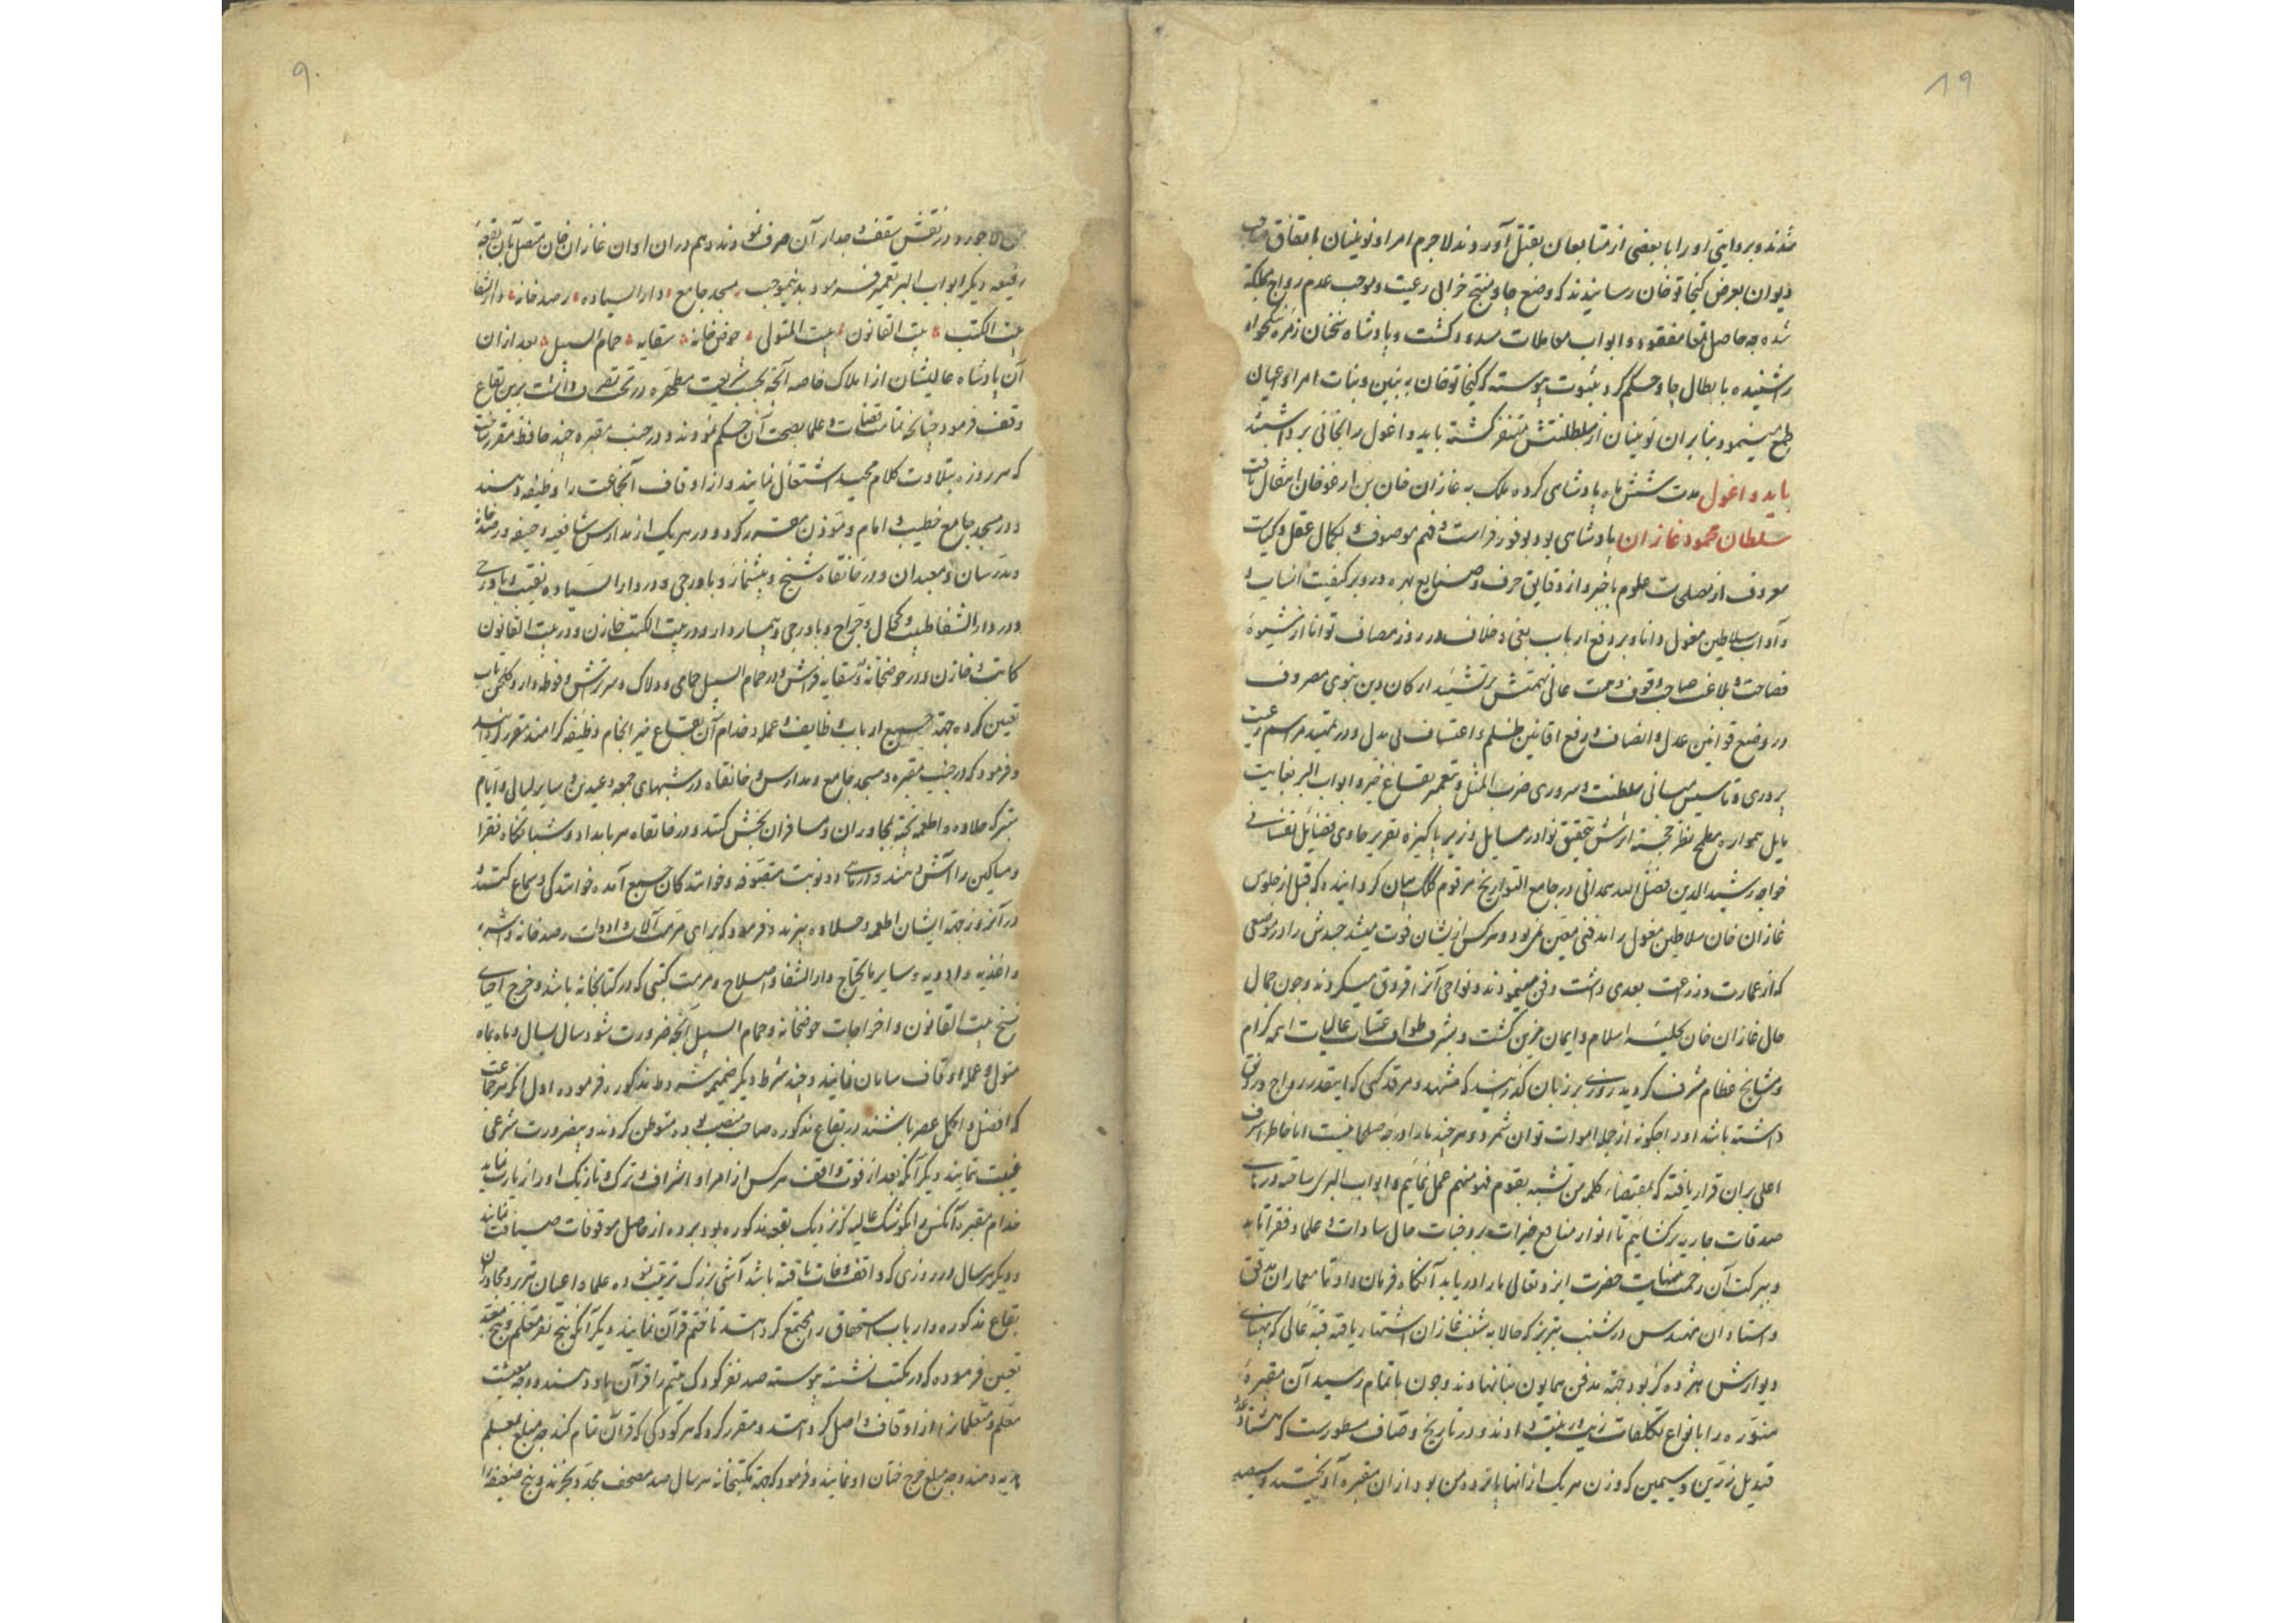 ۸۹
شدند و بروایتی او را با بعضی از متابعان بقتل آوردند لاجرم امرا و نوینان باتفاق صاحب
دیوان بعرض کیخاتو خان رسانیدند که وضع چاو منتج خرابی رعیت و موجب عدم رواج مملکة
شده چه حاصل تمغا مفقود و ابواب معاملات مسدود کشت و پادشاه سخنان زمره نیکخواه
را شنیده بابطال چاو حکم کرد بثبوت پیوسته که کیخاتو خان به بنین و بنات امرا و اعیان
طمع مینمود بنا بران نوینان از سلطنتش متنفر کشته بایدو اغول را بخانی برداشتند
بایدو اغول مدت شش ماه پادشاهی کرده ملک به غازان خان بن ارغو خان انتقال یافت
سلطان محمود غازان پادشاهی بود بوفور فراست و فهم موصوف و بکمال عقل و کیاست
معروف از مصطلحات علوم باخبر و از دقایق حرف و صنایع بهره ور و بر کیفیت انساب و
و آداب سلاطین مغول دانا و بر دفع ارباب بغی و خلاف در روز مصاف توانا از شیوه
فصاحت و بلاغت صاحب وقوف و همت عالی نهمتش بر تشیید ارکان دین نبوی مصروف
در وضع قوانین عدل و انصاف و رفع افانین ظلم و اعتساف بی بدل و در تمهید مراسم رعیت
پروری و تاسیس مبانی سلطنت و سروری ضرب المثل و بتعمیر بقاع خیر و ابواب البر بغایت
مایل همواره مطمح نظر خجسته اثرش تحقیق نوادر مسایل وزیر پاکیزه تقریر حاوی فضایل نفسانی
خواجه رشید الدین فضل الله همدانی در جامع التواریخ مرقوم کلک بیان کردانیده که قبل از جلوس
غازان خان سلاطین مغول را مدفنی معین نمی بود و هرکس از ایشان فوت میشد جسدش را در موضعی
که از عمارت و زراعت بعدی داشت دفن مینمودند و نواحی آنرا قروق میکردند و چون جمال
حال غازان خان بحلیه اسلام و ایمان مزین کشت و بشرف طواف عتبات عالیات ایمه کرام
و مشایخ عظام مشرف کردید روزی بر زبان کذرانید که مشهد و مرقد کسی که اینقدر رواج و رونق
داشته باشد او را چکونه از جمله اموات توان شمرد و هرچند ما را درجه صلحا نیست اما خاطر اشرف
اعلی بران قرار یافته که بمقتضاء کلمه من تشبه بقوم فهو منهم عمل نماییم و ابواب البر ساخته درهای
صدقات جاریه برکشاییم تا انوار منافع خیرات بر وجنات حال سادات و علما و فقرا تابد
و ببرکت آن رحمت بی نهایت حضرت ایزد تعالی ما را دریابد آنکاه فرمان داد تا معماران مدقق
و استادان مهندس در شنب تبریز که حالا به شنب غازان اشتهار یافته قبه عالی که پهنای
دیوارش هژده کز بود جهة مدفن همایون بنا نهادند و چون باتمام رسید آن مقبره
منوره را بانواع تکلفات زیب و زینت دادند و در تاریخ وصاف مسطورست که هشتاد عدد
قندیل زرین و سیمین که وزن هر یک از انها پانزده من بود از ان مقبره آویختند و سیصد
۹۰
من لاجورد در نقش سقف و جدار آن صرف نمودند و هم در ان اوان غازان خان متصل بان بقعه
رفیعه دیکر ابواب البر تعمیر فرمود بدینموجب مسجد جامع دار السیاده رصد خانه دار الشفا
بیت الکتب بیت القانون بیت المتولی حوض خانه سقایه حمام السبیل بعد از ان
آن پادشاه عالیشان از املاک خاصه آنچه بحسب شریعت مطهره در تحت تصرف داشت برین بقاع
وقف فرمود چنانچه تمامت قضات و علما بصحت آن حکم نمودند و در جنب مقبره چند حافظ مقرر ساخت
که هر روزه بتلاوت کلام مجید اشتغال نمایند و از اوقاف آنجماعت را وظیفه دهند
و در مسجد جامع خطیب و امام و موذن مقرر کرد و در هر یک از مدارس شافعیه و حنیفه و رصد خانه
و مدرسان و معیدان و در خانقاه شیخ و پیشنماز و باورچی و در دار السیاده نقیب و باورچی
و در دار الشفا طبیب و کحال و جراح و باورچی و بیماردار و در بیت الکتب خازن و در بیت القانون
کاتب و خازن و در حوضخانه و سقایه فراش و در حمام السبیل حمامی و دلاک و سرتراش و فوطه دار و کلخن تاب
تعیین کرده جهة جمیع ارباب وظایف و عمله و خدام آن بقاع خیر انجام وظیفه کرامند مقرر کردانید
و فرمود که در جنب مقبره و مسجد جامع و مدارس و خانقاه در شبهای جمعه و عیدین و سایر لیالی و ایام
متبرکه حلاوه و اطعمه پخته بمجاوران و مسافران بخش کنند و در خانقاه هر بامداد و شبانکاه فقرا
و مساکین را آش دهند و در ماهی دو نوبت متصوفه و خوانندکان جمیع آمده خوانندکی و سماع کنند و
در آنروز جهة ایشان اطعمه و حلاوه بپزند و فرمود که برای مرمت آلات و ادوات رصد خانه و اشربه
و اغذیه و ادویه و سایر مایحتاج دار الشفا و اصلاح و مرمت کتبی که در کتابخانه باشد و خرج احیای
نسخ بیت القانون و اخراجات حوضخانه و حمام السبیل آنچه ضرورت شود سال بسال و ماه بماه
متولی و عمله اوقاف سامان نمایند و چند شرط دیکر ضمیمه شروط مذکوره فرموده اول انکه هر جماعت
که افضل و اکمل عصر باشند در بقاع مذکوره صاحب منصب بوده متوطن کردند و بیضرورت شرعی
غیبت ننمایند دیکر آنکه بعد از فوت واقف هرکس از امرا و اشراف و ترک و تازیک او را زیارت نماید
خدام مقبره آنکس را بکوشک عالیه که نزدیک بقعه مذکوره بود برده از حاصل موقوفات ضیافت نمایند
و دیکر هر سال در روزی که واقف وفات یافته باشد آشی بزرک ترتیب نموده علما و اعیان تبریز و مجاوران
بقاع مذکوره و ارباب استحقاق را مجتمع کردانند تا ختم قرآن نمایند دیکر آنکه پنج نفر معلم و پنج معید
تعیین فرموده که در مکتب نشسته پیوسته صد نفر کودک یتیم را قرآن یاد دهند و وجه معیشت
معلم و متعلمانرا از اوقاف واصل کردانند و مقرر کرد که هر کودکی که قرآن تمام کند چه مبلغ بمعلم
هدیه دهند و چه مبلغ خرج ختان او نمایند و فرمود که جهة مکتبخانه هر سال صد مصحف مجدد بخرند و پنج ضعیفه را